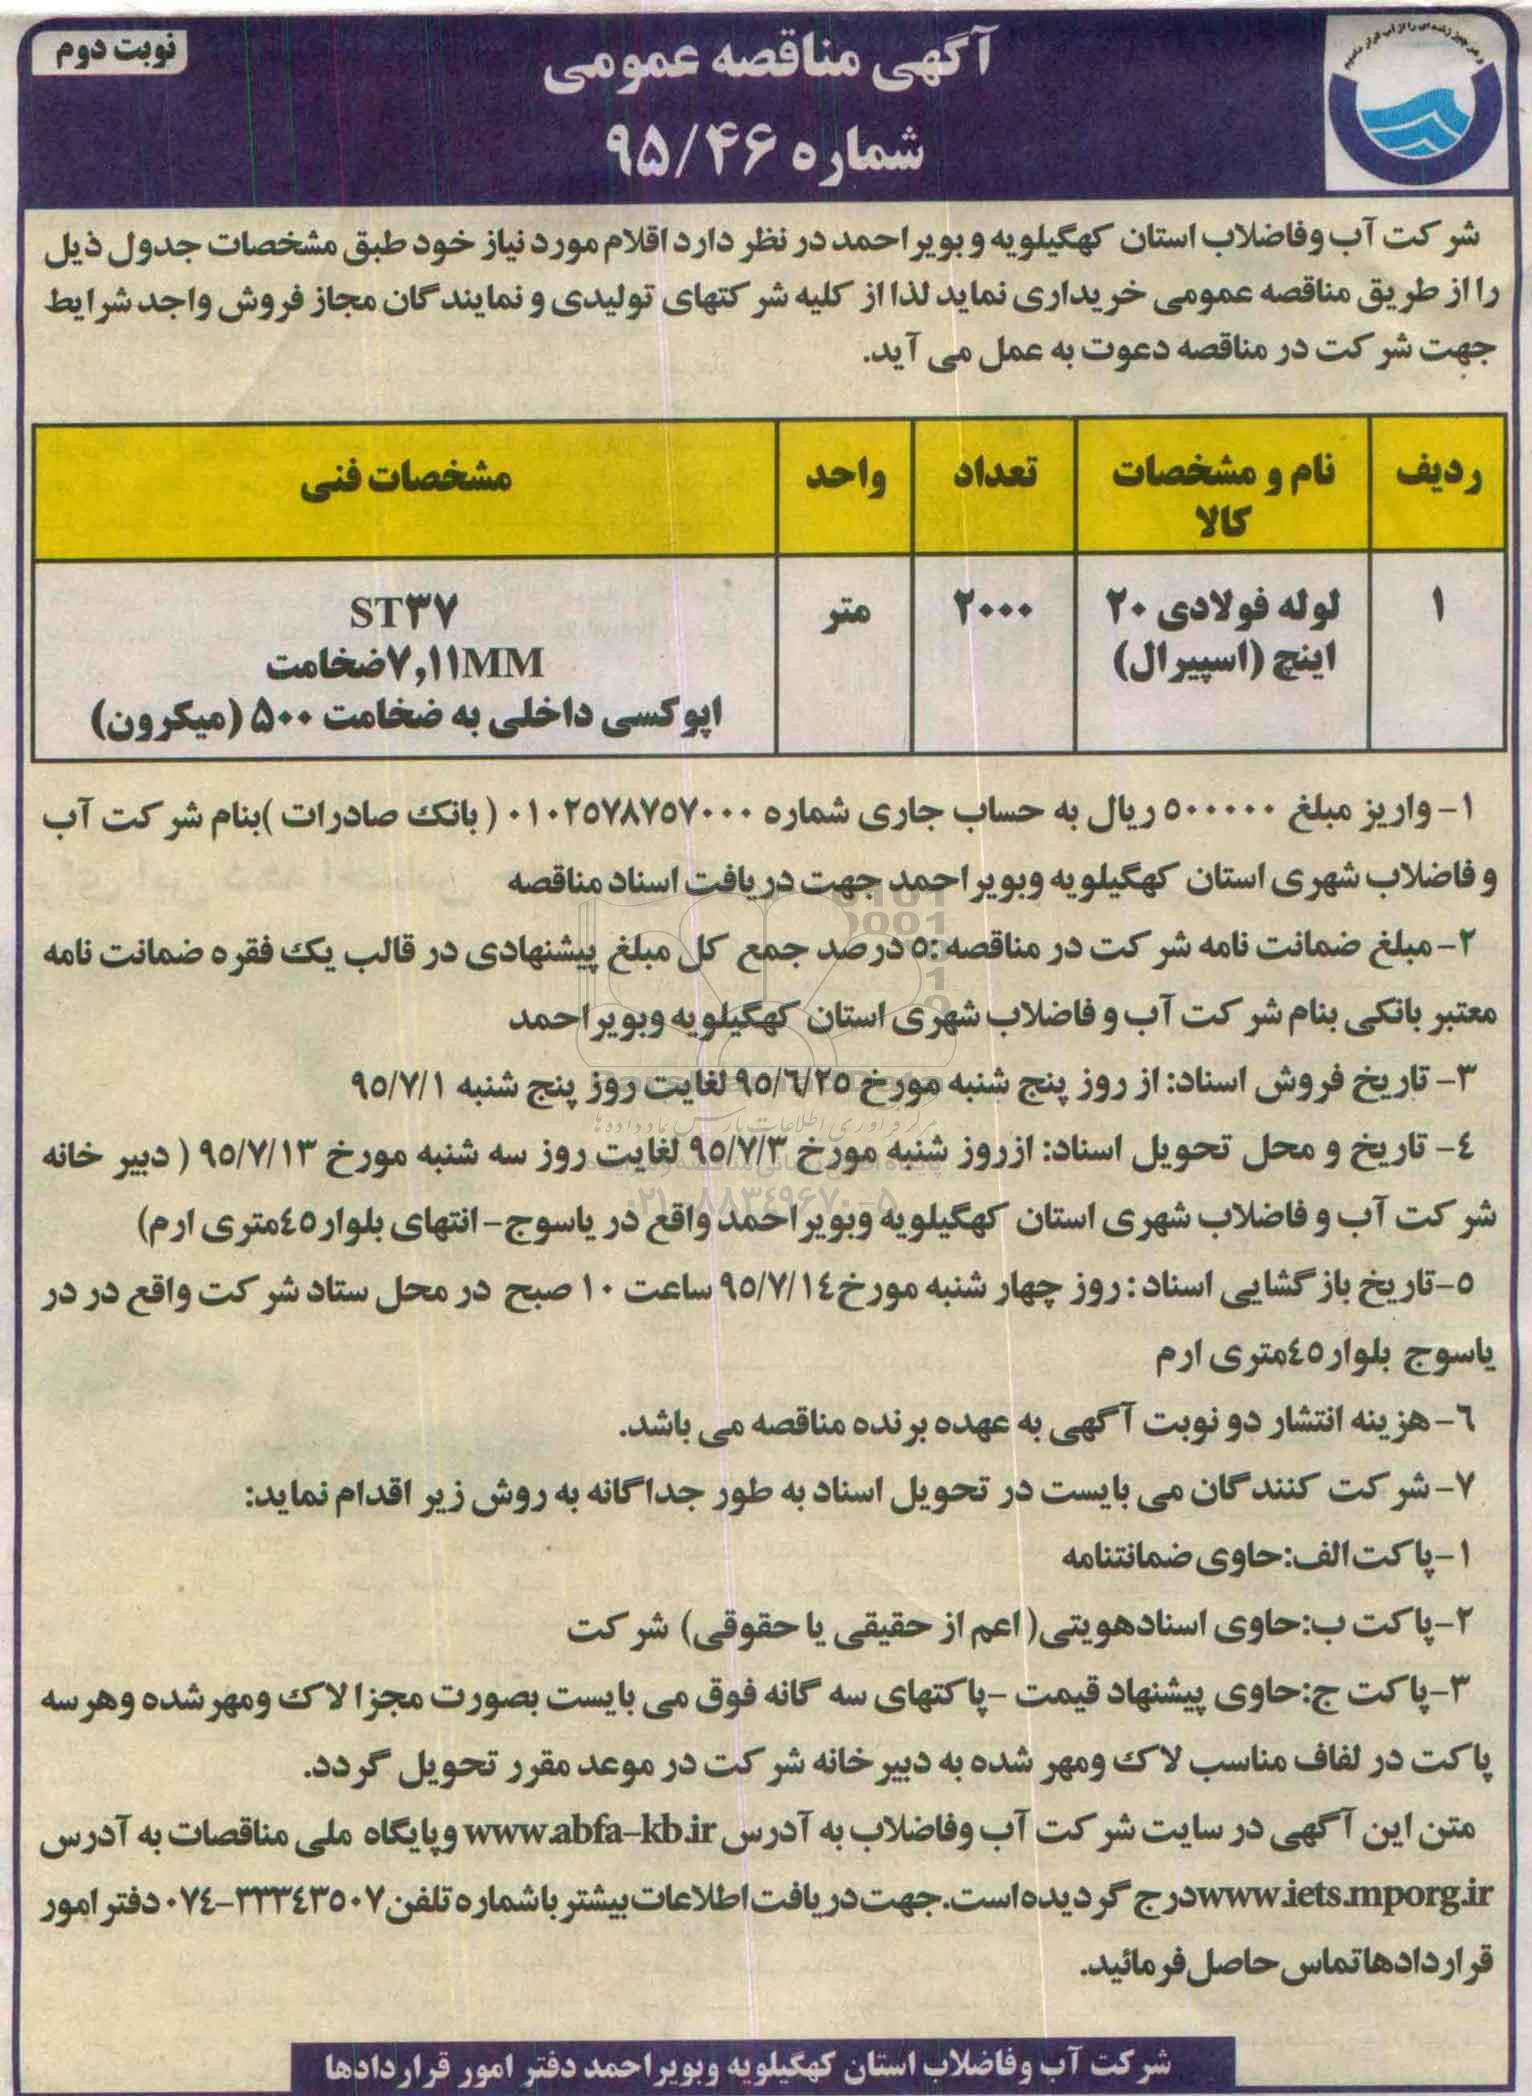 و هر چیز زنده‌ای را از آب قرار دادیم
نوبت دوم
آگهی مناقصه عمومی
شماره ۹۵/۴۶
شرکت آب وفاضلاب استان کهگیلویه و بویراحمد در نظر دارد اقلام مورد نیاز خود طبق مشخصات جدول ذیل
را از طریق مناقصه عمومی خریداری نماید لذا از کلیه شرکتهای تولیدی و نمایندگان مجاز فروش واجد شرایط
جهت شرکت در مناقصه دعوت به عمل می آید.
ردیف نام و مشخصات تعداد واحد مشخصات فنی
کالا
۱ لوله فولادی ۲۰ ۲۰۰۰ متر ST۳۷
اینچ (اسپیرال) ۷,۱۱MMضخامت
اپوکسی داخلی به ضخامت ۵۰۰ (میکرون)
۱- واریز مبلغ ۵۰۰۰۰۰ ریال به حساب جاری شماره ۰۱۰۲۵۷۸۷۵۷۰۰۰ ( بانک صادرات )بنام شرکت آب
و فاضلاب شهری استان کهگیلویه وبویراحمد جهت دریافت اسناد مناقصه
۲- مبلغ ضمانت نامه شرکت در مناقصه :۵ درصد جمع کل مبلغ پیشنهادی در قالب یک فقره ضمانت نامه
معتبر بانکی بنام شرکت آب و فاضلاب شهری استان کهگیلویه وبویراحمد
۳- تاریخ فروش اسناد: از روز پنج شنبه مورخ ۹۵/۶/۲۵ لغایت روز پنج شنبه ۹۵/۷/۱
مرکز فرآوری اطلاعات پارس نماد داده ها
٤- تاریخ و محل تحویل اسناد: ازروز شنبه مورخ ۹۵/۷/۳ لغایت روز سه شنبه مورخ ۹۵/۷/۱۳ ( دبیر خانه
۰۲۱-۸۸۳٤۹۶۷۰-۵
شرکت آب و فاضلاب شهری استان کهگیلویه وبویراحمد واقع در یاسوج- انتهای بلوار٤٥متری ارم)
٥-تاریخ بازگشایی اسناد : روز چهار شنبه مورخ۹۵/۷/۱٤ ساعت ۱۰ صبح در محل ستاد شرکت واقع در در
یاسوج بلوار٤٥متری ارم
٦- هزینه انتشار دو نوبت آگهی به عهده برنده مناقصه می باشد.
۷- شرکت کنندگان می بایست در تحویل اسناد به طور جداگانه به روش زیر اقدام نماید:
۱-پاکت الف:حاوی ضمانتنامه
۲-پاکت ب:حاوی اسنادهویتی( اعم از حقیقی یا حقوقی) شرکت
۳-پاکت ج:حاوی پیشنهاد قیمت -پاکتهای سه گانه فوق می بایست بصورت مجزا لاک ومهرشده وهرسه
پاکت در لفاف مناسب لاک ومهر شده به دبیرخانه شرکت در موعد مقرر تحویل گردد.
متن این آگهی در سایت شرکت آب وفاضلاب به آدرس www.abfa-kb.ir وپایگاه ملی مناقصات به آدرس
www.iets.mporg.irدرج گردیده است.جهت دریافت اطلاعات بیشتر باشماره تلفن۰۷٤-۳۳۳٤۳۵۰۷ دفتر امور
قراردادهاتماس حاصل فرمائید.
شرکت آب وفاضلاب استان کهگیلویه وبویراحمد دفتر امور قراردادها